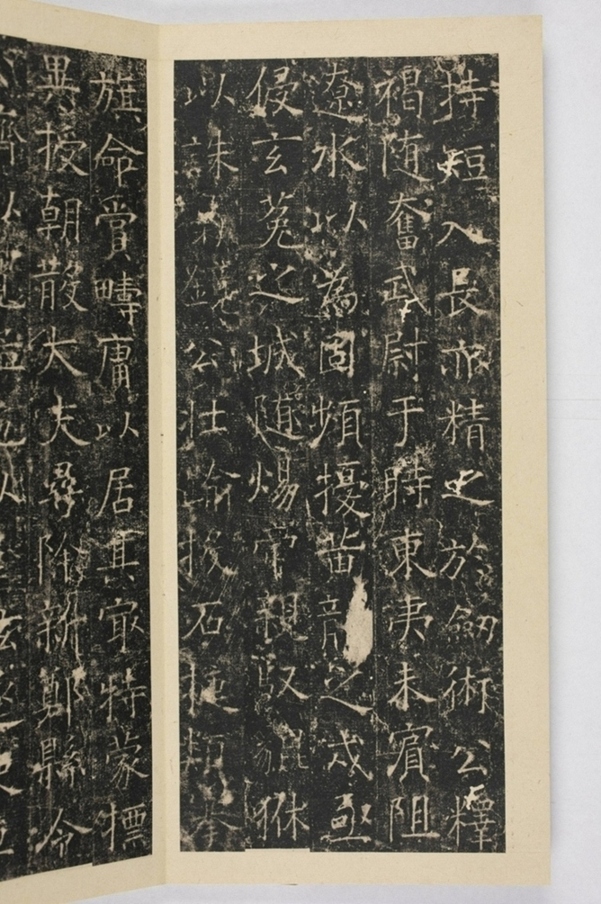 持短入長亦精之於劒術公釋
褐随奮武尉于時東夷未賓阻
遼水以為固頻擾䒤龍之戍亟
侵玄菟之城隨煬帝親馭貔貅
以誅 公壮踰投石捷
旗命賞疇庸以居其冣特蒙標
異授朝散大夫尋除新鄭縣令
以